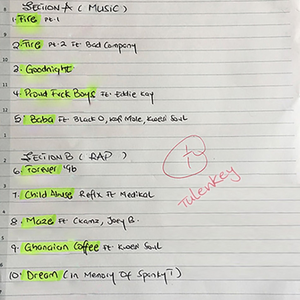 SECTION A ( MUSIC)
1. Fire Pt. 1
2. Fire Pt. 2 Ft Bad Company
3. Goodnight
4. Proud Fvck Boys Ft. Eddie Kay
5. Baba Ft. Black O, Kofi Mole, Kwesi Soul
SECTION B ( RAP )
6. Forever 46
7. Child Abuse Refix Ft Medikal
8. Maze Ft. Ckamz, Joey B.
9. Ghanaian Coffee Ft. Kwesi Soul
10. Dream (In Memory Of Spanky T)
Tulenkey